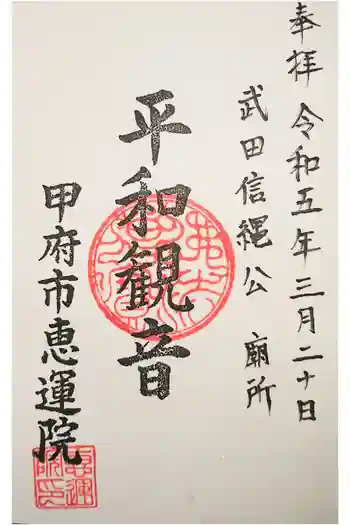 奉拝 令和五年三月二十日
武田信縄公 廟所
平和観音
甲府市恵運院